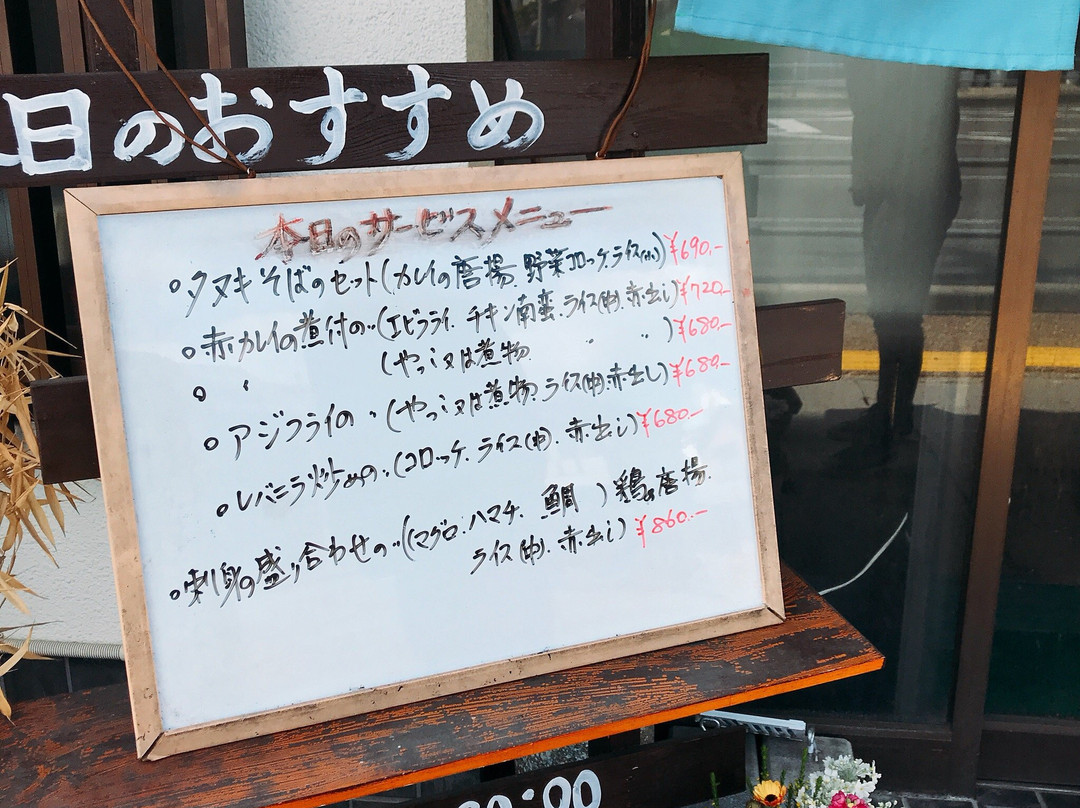 日のおすすめ
本日のサービスメニュー
○タヌキそばのセット(カレイの唐揚.野菜コロッケ.ライス(小)) ¥690.-
○赤カレイの煮付の〃(エビフライ.チキン南蛮.ライス(中).赤出し) ¥720.-
○〃(やっこ又は煮物.〃〃) ¥680.-
○アジフライの〃(やっこ又は煮物.ライス(中).赤出し) ¥680.-
○レバニラ炒めの〃(コロッケ.ライス(中).赤出し) ¥680.-
○刺身の盛り合わせの〃((マグロ.ハマチ.鯛)鶏の唐揚.
ライス(中).赤出し) ¥860.-
:00